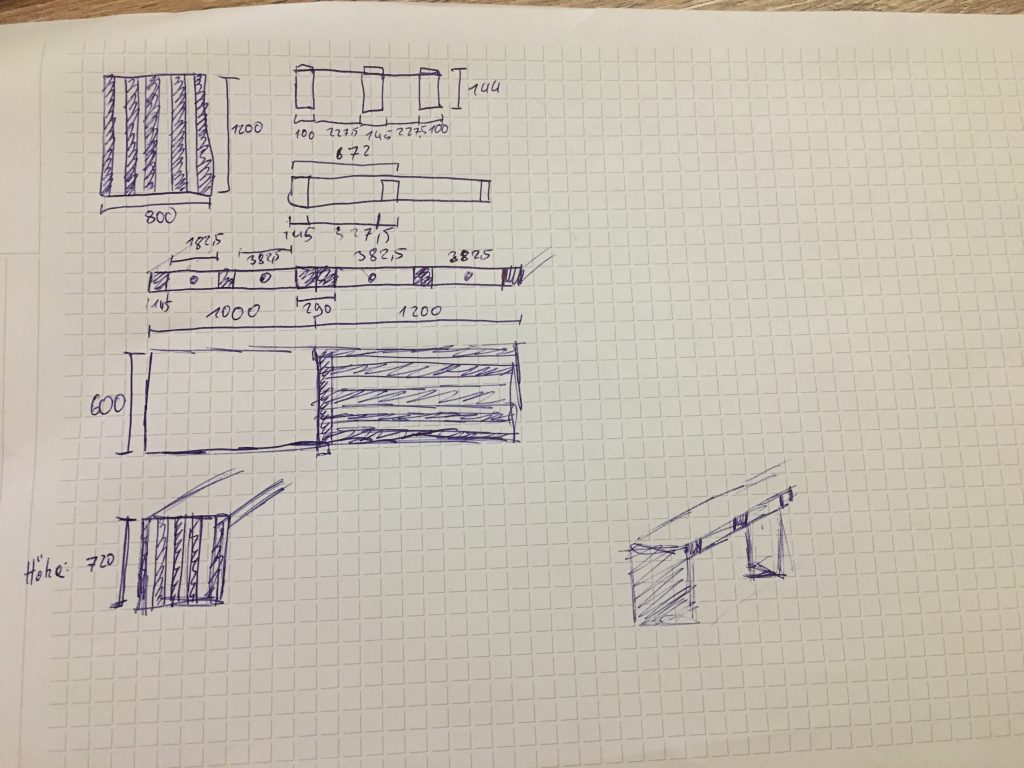 1200
800
144
100 227,5 145 227,5 100
672
145 527,5
182,5 382,5 382,5 382,5
145
1000 290 1200
600
Höhe: 720